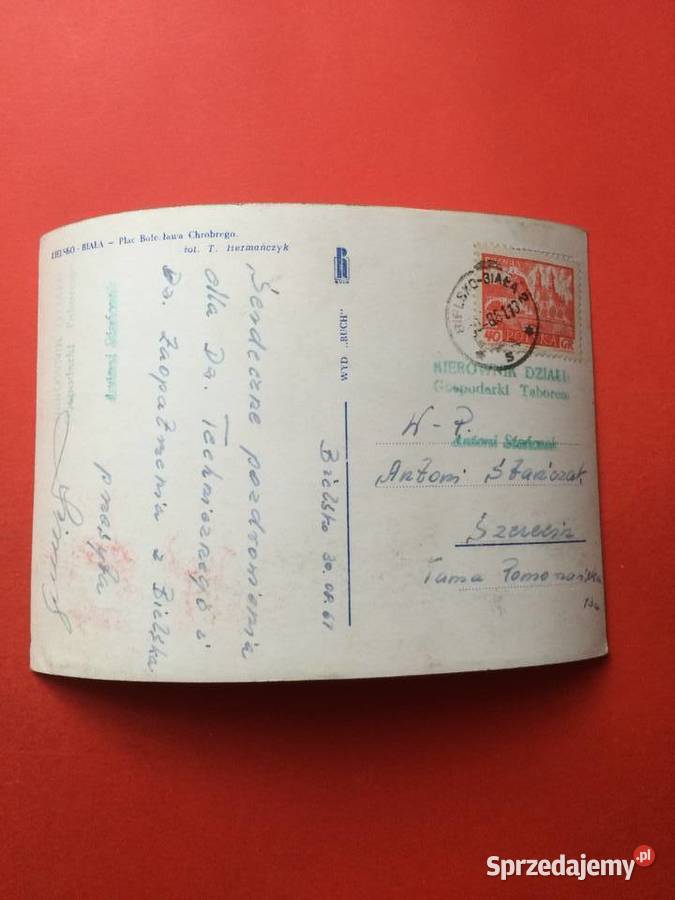 BIELSKO - BIAŁA — Plac Bolesława Chrobrego.
fot. T. Hermańczyk
Serdeczne pozdrowienia
dla Dz. Technicznego i
Dz. Zaopatrzenia z Bielska
przesyła
Bielsko 30.08.61
WYD. „RUCH"
BIELSKO-BIAŁA 2
POLSKA
40 GR
KIEROWNIK DZIAŁU
Gospodarki Taborem
Antoni Stańczak
W. P.
Antoni Stańczak
Szczecin
Tama Pomorzańska
Antoni Stańczak
Sprzedajemy.pl